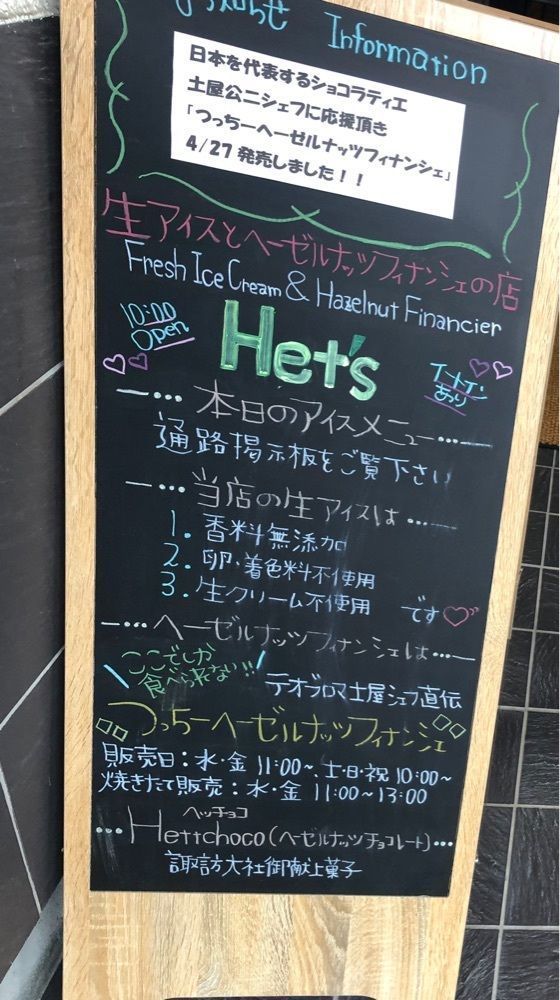 お知らせ Information
日本を代表するショコラティエ
土屋公二シェフに応援頂き
「つっちーヘーゼルナッツフィナンシェ」
4/27 発売しました！！
生アイスとヘーゼルナッツフィナンシェの店
Fresh Ice Cream & Hazelnut Financier
10:00
Open
Het's
イートイン
あり
本日のアイスメニュー…
通路掲示板をご覧下さい
…当店の生アイスは…
1. 香料無添加
2. 卵・着色料不使用
3. 生クリーム不使用 です
…ヘーゼルナッツフィナンシェは…
ここでしか
食べられない!!
テオブロマ土屋シェフ直伝
つっちーヘーゼルナッツフィナンシェ
販売日：水・金 11:00〜、土・日・祝 10:00〜
焼きたて販売：水・金 11:00〜13:00
ヘッチョコ
…Hettchoco(ヘーゼルナッツチョコレート)…
諏訪大社御献上菓子